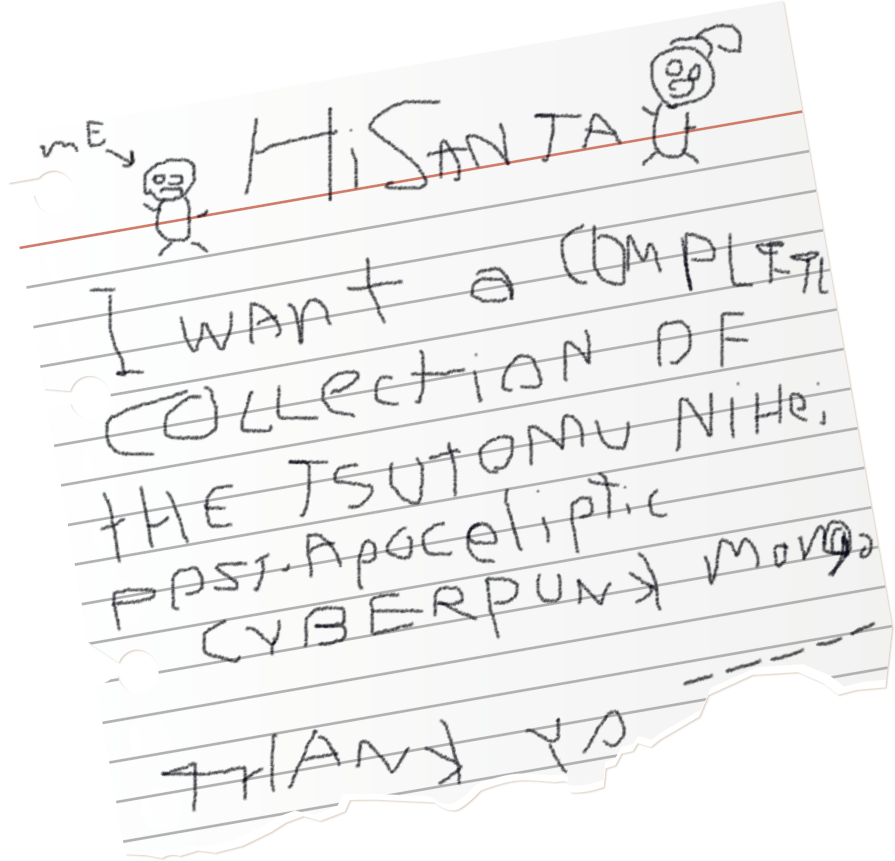 mE
Hi SANTA
I WANt a COMPLETE
COLLecti​ON OF
tHE TSUTOMU NiHei
POST-Apoceliptic
CYBERPUNK Manga
THANK YO